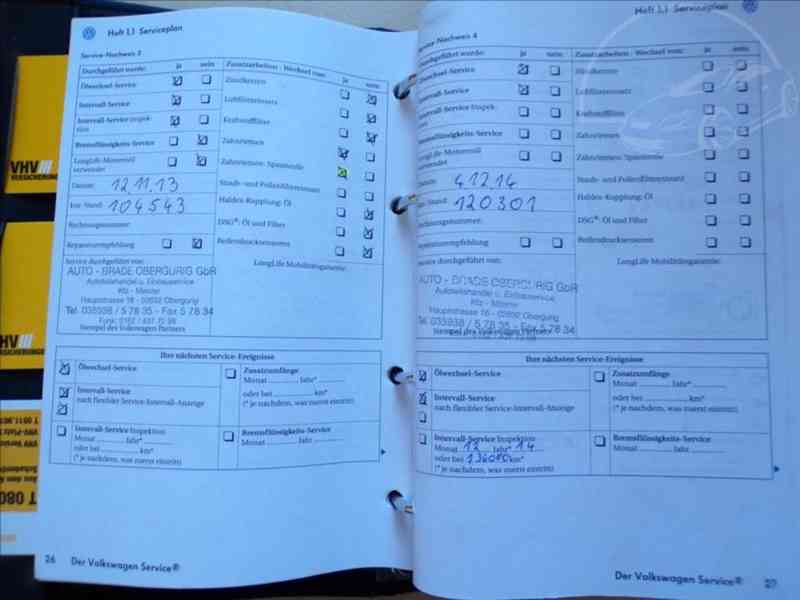 Heft 1.1 Serviceplan
Service-Nachweis 3
Durchgeführt wurde: ja nein
Ölwechsel-Service
Intervall-Service
Intervall-Service Inspektion
Bremsflüssigkeits-Service
LongLife-Motorenöl
verwendet
Datum: 12.11.13
km-Stand: 104543
Rechnungsnummer:
Reparaturempfehlung
Service durchgeführt von:
AUTO - BRADE OBERGURIG GbR
Autoteilehandel u. Einbauservice
Kfz - Meister
Hauptstrasse 18 - 02692 Obergurig
Tel. 035938 / 5 78 35 - Fax 5 78 34
Stempel des Volkswagen Partners
Zusatzarbeiten - Wechsel von: ja nein
Zündkerzen
Luftfiltereinsatz
Kraftstofffilter
Zahnriemen
Zahnriemen-Spannrolle
Staub- und Pollenfiltereinsatz
Haldex-Kupplung: Öl
DSG®: Öl und Filter
Reifendruckse
LongLife Mobilitätsgarantie:
Ihre nächsten Service-Ereignisse
Ölwechsel-Service
Intervall-Service
nach flexibler Service-Intervall-Anzeige
Intervall-Service Inspektion
Monat Jahr*
oder bei km*
(* je nachdem, was zuerst eintritt)
Zusatzumfänge
Monat Jahr*
oder bei km*
(* je nachdem, was zuerst eintritt)
Bremsflüssigkeits-Service
26 Der Volkswagen Service®
Heft 1.1 Serviceplan
Service-Nachweis 4
durchgeführt wurde: ja nein
Ölwechsel-Service
Intervall-Service
Intervall-Service Inspektion
Bremsflüssigkeits-Service
LongLife-Motorenöl
verwendet
Datum: 4.12.14
km-Stand: 120301
Rechnungsnummer:
Reparaturempfehlung
Service durchgeführt von:
AUTO - BRADE OBERGURIG GbR
Autoteilehandel u. Einbauservice
Kfz - Meister
Hauptstrasse 18 - 02692 Obergurig
Tel. 035938 / 5 78 35 - Fax 5 78 34
Stempel des Volkswagen Partners
Zusatzarbeiten - Wechsel von: ja nein
Zündkerzen
Luftfiltereinsatz
Kraftstofffilter
Zahnriemen
Zahnriemen-Spannrolle
Staub- und Pollenfiltereinsatz
Haldex-Kupplung: Öl
DSG®: Öl und Filter
LongLife Mobilitätsgarantie:
Ihre nächsten Service-Ereignisse
Ölwechsel-Service
Intervall-Service
nach flexibler Service-Intervall-Anzeige
Intervall-Service Inspektion
Monat 12 Jahr* 14
oder bei 136000 km*
(* je nachdem, was zuerst eintritt)
Zusatzumfänge
Monat Jahr*
oder bei km*
(* je nachdem, was zuerst eintritt)
Bremsflüssigkeits-Service
Der Volkswagen Service® 27
VHV
VERSICHERUNG
VHV
VERSICHERUNG
T 080